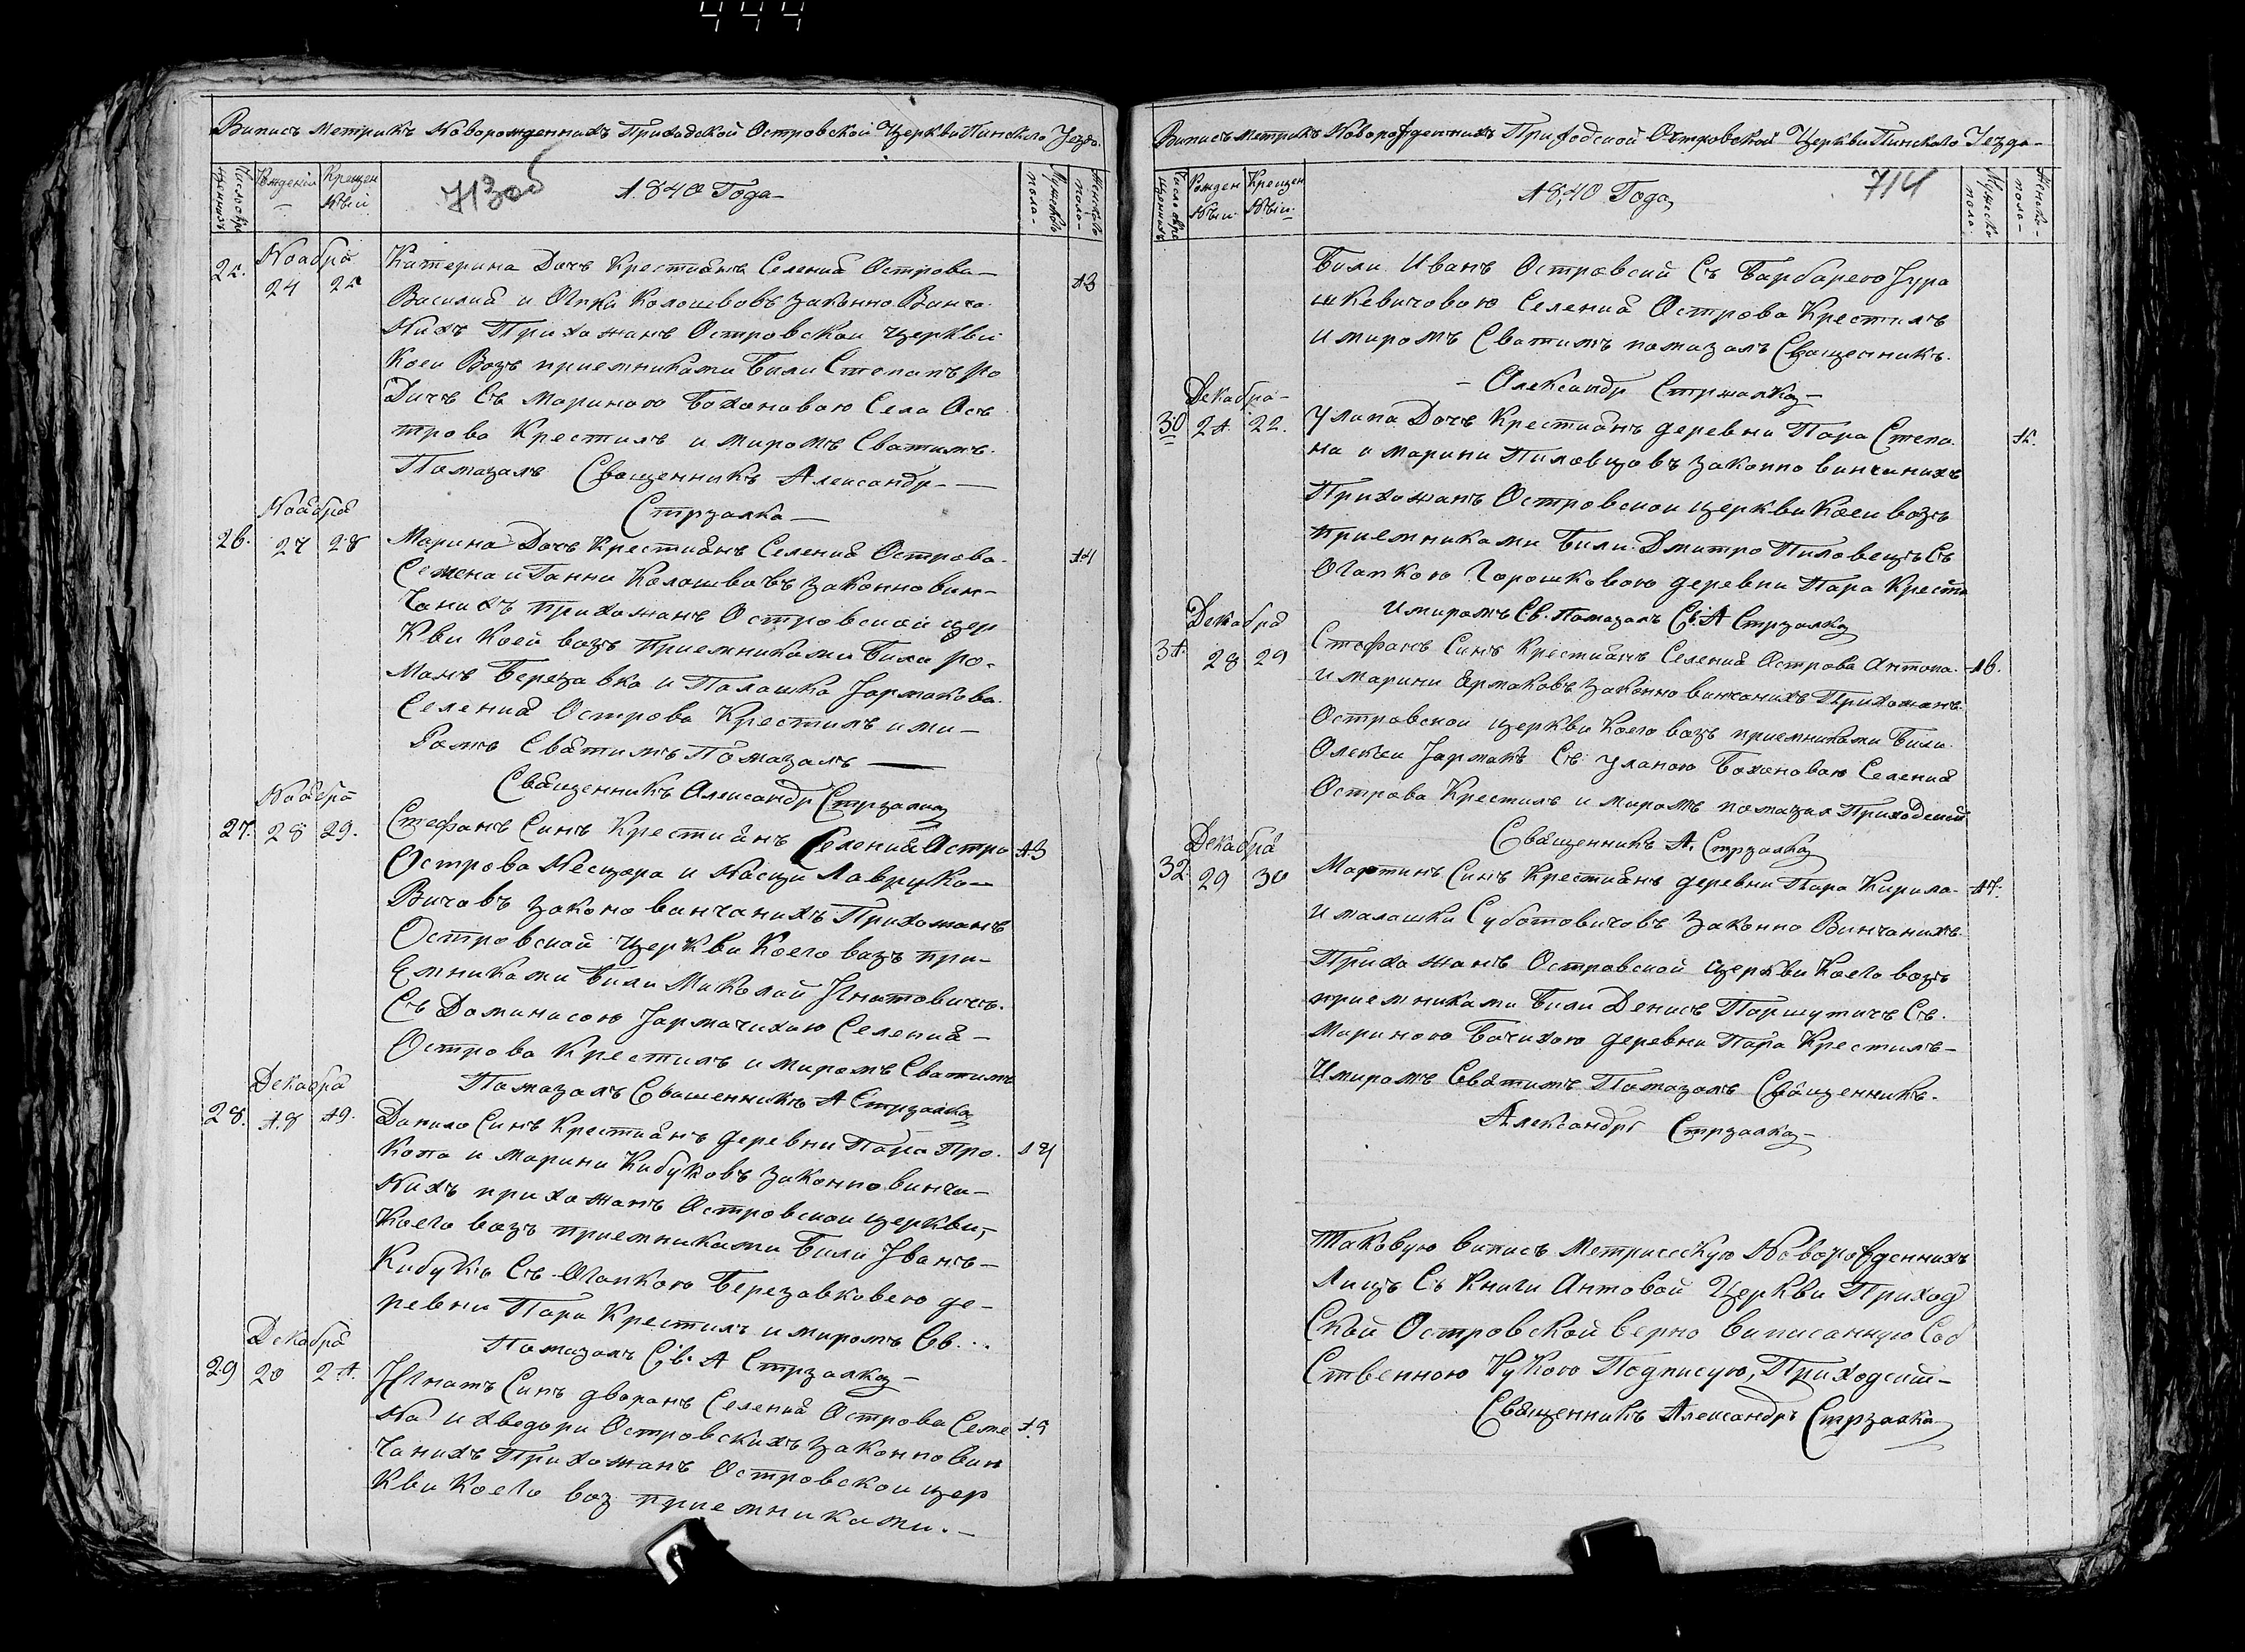 444
Випись метрикъ Новорожденнихъ Приходской Островской Церкви Пинского Уезда
Рожденій
Крещен
ный
713 об
1840 Года
Мужеска
пола
Женска
пола
Ноабра
25.
24
25
13
Катерина Дочь Крестианъ Селениа Острова
Василиа и Опки Колошевовъ законно Винча
нихъ Прихожанъ Островскои церкви
Коеи Возъ приемниками Били Степанъ Ро
дичъ Съ Мариною Бохоновою Села Ост
трова Крестилъ и миромъ Сватимъ
Помазалъ Сващенникъ Александр
Стрзалка
Ноабра
26.
27
28
14
Марина Дочь Крестианъ Селениа Острова
Семена и Ганни Колошвовъ законно вин
чанихъ прихожанъ Островскои цер
кви коей возъ приемниками Били Ро
манъ Березавка и Палашка Јармакова
Селениа Острова Крестилъ и ми
ромъ Сватимъ Помазалъ
Сващенникъ Александр Стрзалка
Ноабра
27.
28
29.
13
Стефанъ Синъ Крестианъ Селениа Остро
Острова Несцора и Насци Лавруко
вичовъ законо винчанихъ Прихожанъ
Островской Церкви Коего возъ при
емниками Били Миколай Јгнатовичъ
Съ Доминисою Јармачихою Селениа
Острова Крестилъ и миромъ Сватимъ
Помазалъ Сващенникъ А Стрзалка
Декабра
28.
18
19.
14
Данило Синъ Крестианъ деревни Пара Про
копа и Марини Кибуковъ законно винча
нихъ прихожанъ Островскои церкви,
Коего возъ приемниками Били Јванъ
Кибукъ Съ Огапкою Березавковею де
ревни Пари Крестилъ и миромъ Св.
Помазалъ Св: А Стрзалка
Декабра
29
20
21.
15
Јгнатъ Синъ дворанъ Селениа Острова Семе
на и Хведори Островскихъ законно вин
чанихъ Прихожанъ Островскои цер
кви Коего воз приемниками.
Випись метрикъ Новорожденнихъ Приходской Островской Церкви Пинского Уезда
Рожден
ныи
Крещен
ныи
1840 Года
714
Мужеска
пола
Женска
пола
Били Иванъ Островсий Съ Барбарею Јура
шкевичовою Селениа Острова Крестилъ
и миромъ Сватимъ помазалъ Сващенникъ
Олександр Стржалка
Декабра
30
21
22.
15.
Улана Дочъ Крестианъ деревни Пара Степа
на и Марини Пиловцовъ законно винчанихъ
Прихожанъ Островскои церкви Коеи возъ
приемниками Били Дмитро Пиловецъ Съ
Огапкою Горошковою деревни Пара Крести
и миромъ Св. Помазалъ Св: А Стрзалка
Декабра
31.
28
29
16.
Стефанъ Синъ Крестианъ Селениа Острова Антона
и Марини Ермаковъ законно винчанихъ Прихожанъ
Островскои церкви Коего возъ приемниками Били
Олексеи Јармакъ Съ Уланою Бохоновою Селениа
Острова Крестилъ и миромъ помазал Приходский
Сващенникъ А. Стрзалка
Декабра
32.
29
30
17.
Мартинъ Синъ Крестианъ деревни Пара Кирила
и Малашки Суботовичовъ законно Винчанихъ
Прихожанъ Островской Церкви Коего возъ
приемниками Били Денисъ Паршутичъ Съ
Мариною Бачихою деревни Пара Крестилъ
и миромъ Сватимъ Помазалъ Сващенникъ
Александръ Стрзалка
Таковую випись Метрическую Новорожденнихъ
Лицъ Съ Книги Актовой Церкви Приход
Ской Островской верно виписанную Соб
Ственною Рукою Подписую, Приходский
Сващенникъ Александръ Стрзалка